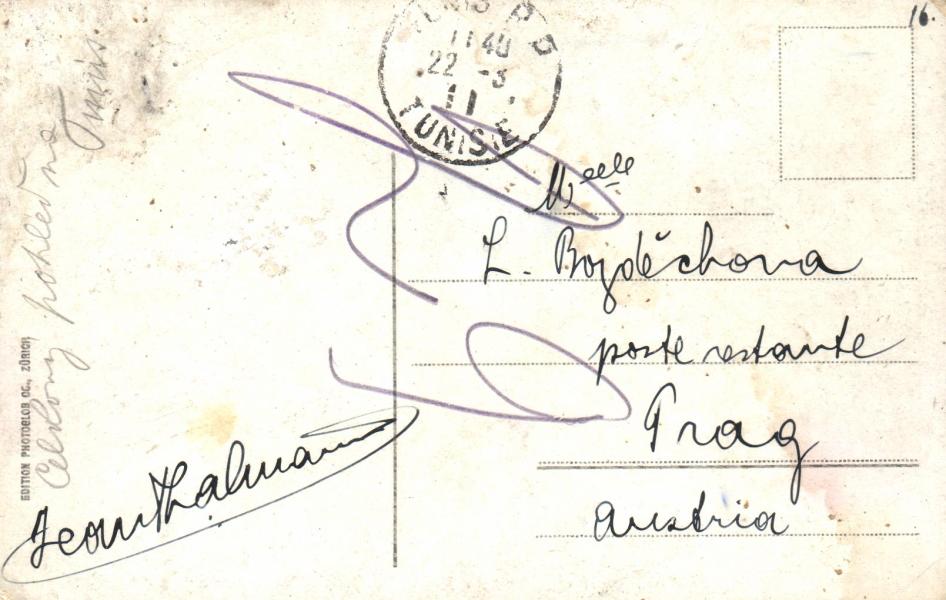 16.
TUNIS R.P.
11 40
22 -3
11
TUNISIE
Melle
L. Bozděchova
poste restante
Prag
Austria
Jean Thalmann
Celkový pohled na
Tunis.
EDITION PHOTOGLOB CO., ZÜRICH